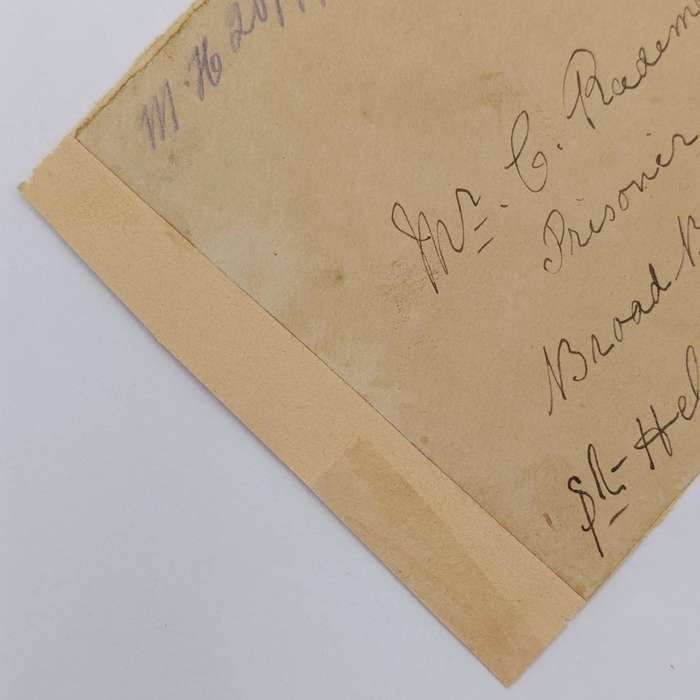 M. H 20/
Mr. C. Radem
Prisoner
Broad B
St. Hel